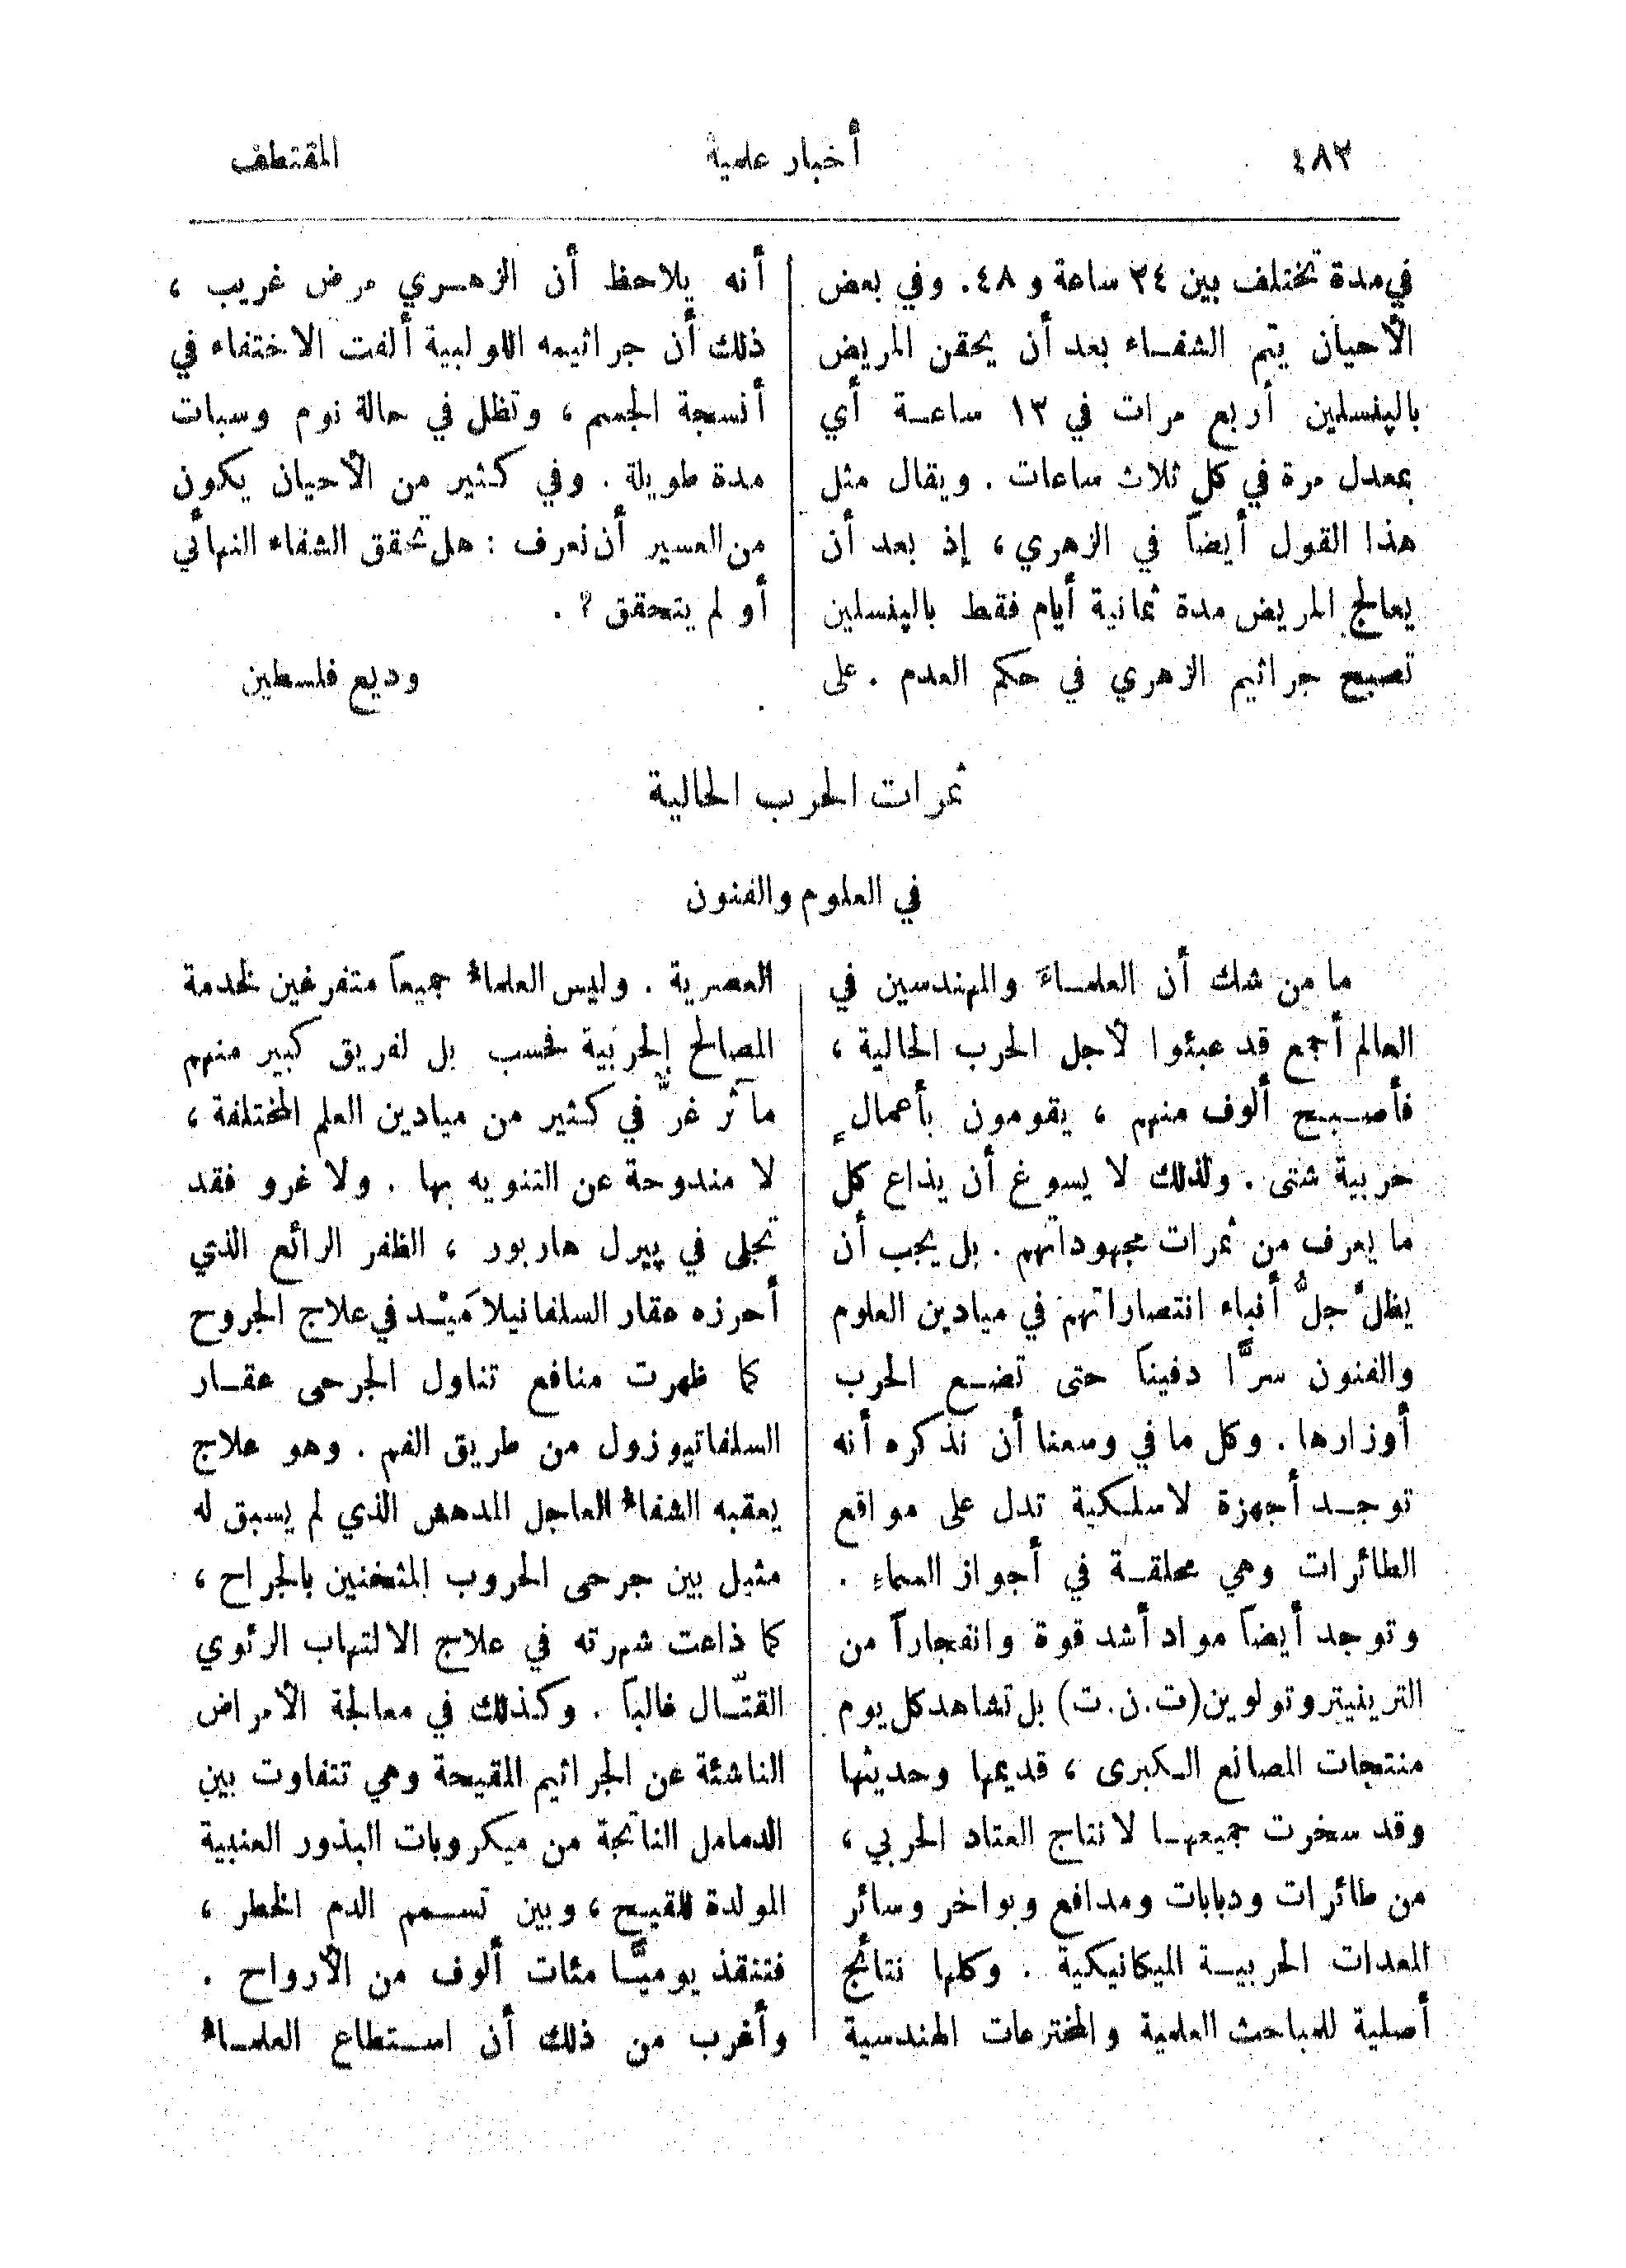 ٤٨٢
أخبار علمية
المقتطف
في مدة تختلف بين ٢٤ ساعة و ٤٨. وفي بعض
الأحيان يتم الشفاء بعد أن يحقن المريض
بالپنسلين أربع مرات في ١٢ ساعة أي
بمعدل مرة في كل ثلاث ساعات . ويقال مثل
هذا القول أيضاً في الزهري ، إذ بعد أن
يعالج المريض مدة ثمانية أيام فقط بالپنسلين
تصبح جراثيم الزهري في حكم العدم . على
أنه يلاحظ أن الزهري مرض غريب ،
ذلك أن جراثيمه اللولبية ألفت الاختفاء في
أنسجة الجسم ، وتظل في حالة نوم وسبات
مدة طويلة . وفي كثير من الأحيان يكون
من العسير أن نعرف : هل تحقق الشفاء النهائي
أو لم يتحقق ؟ .
وديع فلسطين
ثمرات الحرب الحالية
في العلوم والفنون
ما من شك أن العلماءَ والمهندسين في
العالم أجمع قد عبئوا لأجل الحرب الحالية ،
فأصبح ألوف منهم ، يقومون بأعمالٍ
حربية شتى . ولذلك لا يسوغ أن يذاع كل
ما يعرف من ثمرات مجهوداتهم . بل يجب أن
يظلَّ جلُّ أنباء انتصاراتهم في ميادين العلوم
والفنون سرًّا دفيناً حتى تضع الحرب
أوزارها . وكل ما في وسعنا أن نذكره أنه
توجد أجهزة لاسلكية تدل على مواقع
الطائرات وهي محلقة في أجواز السماء .
وتوجد أيضاً مواد أشد قوة وانفجاراً من
الترينيتروتولوين (ت.ن.ت) بل تشاهد كل يوم
منتجات المصانع الكبرى ، قديمها وحديثها
وقد سخرت جميعها لانتاج العتاد الحربي ،
من طائرات ودبابات ومدافع وبواخر وسائر
المعدات الحربية الميكانيكية . وكلها نتائج
أصلية للمباحث العلمية والمخترعات الهندسية
العصرية . وليس العلماءُ جميعاً متفرغين لخدمة
المصالح الحربية فحسب بل لفريق كبير منهم
مآثر غرّ في كثير من ميادين العلم المختلفة ،
لا مندوحة عن التنويه بها . ولا غرو فقد
تجلى في پيرل هاربور ، الظفر الرائع الذي
أحرزه عقار السلفانيلاميْد في علاج الجروح
كما ظهرت منافع تناول الجرحى عقار
السلفاتيوزول من طريق الفم . وهو علاج
يعقبه الشفاءُ العاجل المدهش الذي لم يسبق له
مثيل بين جرحى الحروب المثخنين بالجراح ،
كما ذاعت شهرته في علاج الالتهاب الرئوي
القتّال غالباً . وكذلك في معالجة الأمراض
الناشئة عن الجراثيم المقيحة وهي تتفاوت بين
الدمامل الناتجة من ميكروبات البذور العنبية
المولدة للقيح ، وبين تسمم الدم الخطر ،
فتنقذ يوميًّا مئات ألوف من الأرواح .
وأغرب من ذلك أن استطاع العلماءُ